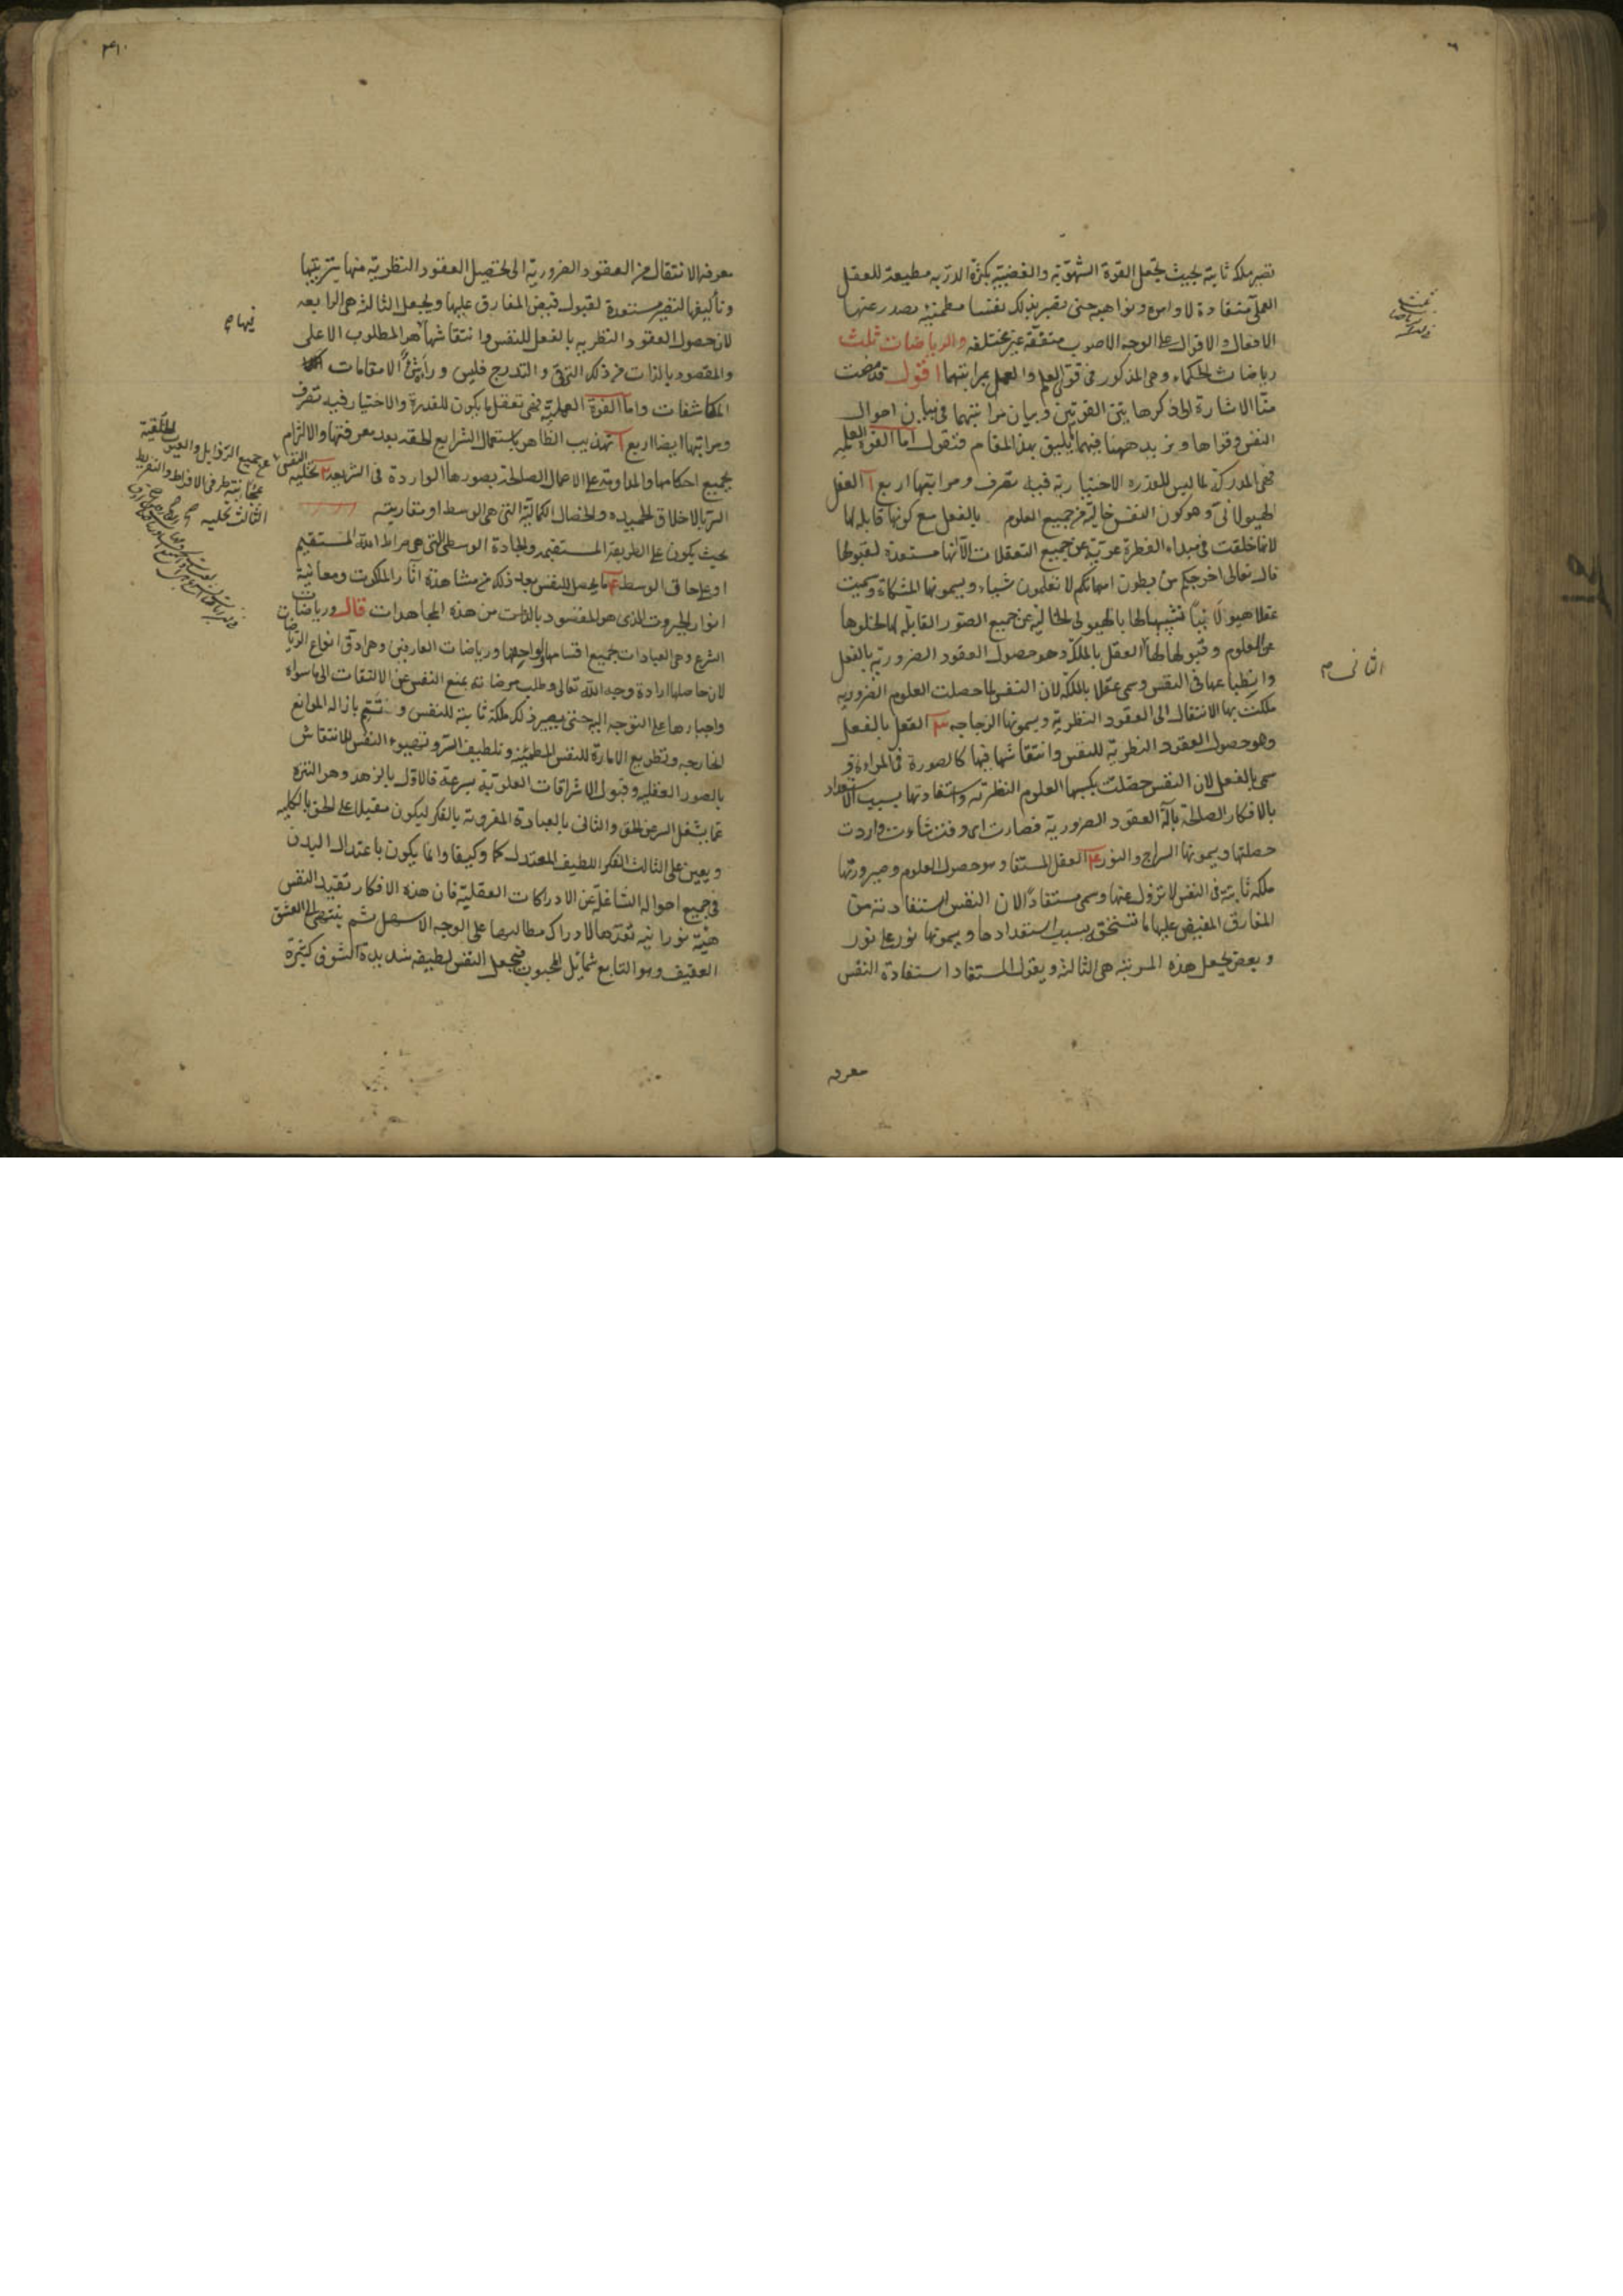 تصير ملكة ثابتة بحيث تجعل القوة الشهوية والغضبية بكثرة الدربه مطيعة للعقل
العملى منقادة لاوامره ونواهيه حتى تصير بذلك نفسا مطمئنة يصدر عنها
الافعال والاقوال على الوجه الاصوب متفقة غير مختلفه والرياضات ثلث
رياضات الحكماء وهى المذكور فى قوتى العلم والعمل بمراتبهما اقول قد مضت
منّا الاشارة الى ذكرها بين القوتين وبيان مراتبهما فى بيان احوال
النفس وقواها ونزيد ههنا فيهما ما يليق بهذا المقام فنقول اما القوة العلمية
فهى المدركة لما ليس للقدره الاختيارية فيه تصرف ومراتبها اربع ا العقل
الهيولانى وهو كون النفس خالية من جميع العلوم بالفعل مع كونها قابلة لها
لانها خلقت فى مبداء الفطرة عرية عن جميع التعقلات الا انها مستعدة لقبولها
قال تعالى اخرجكم من بطون امهاتكم لا تعلمون شياء ويسمونها المشكاة وسميت
عقلا هيولانيا تشبيها لها بالهيولى الخالية عن جميع الصور القابلة لها لخلوها
عن العلوم وقبولها لها العقل بالملكة وهو حصول العقود الضرورية بالفعل
وانطباعها فى النفس وسمى عقلا بالملكة لان النفس لما حصلت العلوم الضروريه
ملكت بها الانتقال الى العقود النظرية ويسمونها الزجاجه ٣ العقل بالفعل
وهو حصول العقود النظرية للنفس وانتقاشها فيها كالصورة فى المراءة و
سمى بالفعل لان النفس حصلت بكسبها العلوم النظرية واستفادتها بسبب الاستعداد
بالافكار الصالحة بآلة العقود الضرورية فصارت اى وقت شاءت واردت
حصلتها ويسمونها السراج والنور ٤ العقل المستفاد وهو حصول العلوم وصيرورتها
ملكة ثابتة فى النفس لا تزول عنها وسمى مستفادًا لان النفس استفادته من
المفارق المفيض عليها ما تستحقه بسبب استعدادها ويسمونها نور على نور
وبعض يجعل هذه المرتبة هى الثالثة ويقول المستفاد استفادة النفس
معرفه
الثانى م
٤١٠
معرفة الانتقال من العقود الضرورية الى تحصيل العقود النظرية منها بترتيبها
وتأليفها لتصير مستعدة لقبول فيض المفارق عليها ويجعل الثالثة هى الرابعه
لان حصول العقود النظرية بالفعل للنفس وانتقاشها هو المطلوب الاعلى
والمقصود بالذات من ذلك الترقى والتدريج فليس وراءه الا مقامات
المكاشفات واما القوة العملية فهى تعقل ما يكون للقدرة والاختيار فيه تصرف
ومراتبها ايضا اربع ا تهذيب الظاهر باستعمال الشرايع الحقه بعد معرفتها والالتزام
بجميع احكامها والمداومة على الاعمال الصالحة بصورها الواردة فى الشريعة ٢ تخلية النفس
السر بالاخلاق الحميده والخصال الكمالية التى هى الوسط او مقاربته
بحيث يكون على الطريقة المستقيمه والجادة الوسطى التى هى صراط الله المستقيم
او على حاق الوسط ٤ ما يحصل للنفس بعد ذلك من مشاهدة آثار الملكوت ومعاينة
انوار الجبروت الذى هو المقصود بالذات من هذه المجاهدات قال ورياضات
الشرع وهى العبادات بجميع اقسامها ولواحقها ورياضات العارفين وهى ادق انواع الرياضات
لان حاصلها ارادة وجه الله تعالى وطلب مرضاته بمنع النفس عن الالتفات الى ما سواه
واجبارها على التوجه اليه حتى يصير ذلك ملكة ثابتة للنفس وتتم بازاله الموانع
الخارجيه وتطويع الامارة للنفس المطمئنة وتلطيف السر وتهيوء النفس للانتقاش
بالصور العقليه وقبول الاشراقات العلوية بسرعة فالاول بالزهد وهو التنزه
عما يشغل السر عن الحق والثانى بالعبادة المقرونة بالفكر ليكون مقبلا على الحق بالكليه
ويعين على الثالث الفكر اللطيف المعتدل كما وكيفا وانما يكون باعتدال البدن
فى جميع احواله الشاغلة عن الادراكات العقلية فان هذه الافكار تفيد النفس
هيئة نورانيه تعدّها لادراك مطالبها على الوجه الاسهل ثم ينتهى الى العشق
العفيف وهو التابع شمائل المحبوب فتجعل النفس لطيفه شديدة الشوق كثيرة
عن جميع الرذايل والعيوب الخلقية
بمجانبته طرفى الافراط والتفريط
الثالث تحليه صح